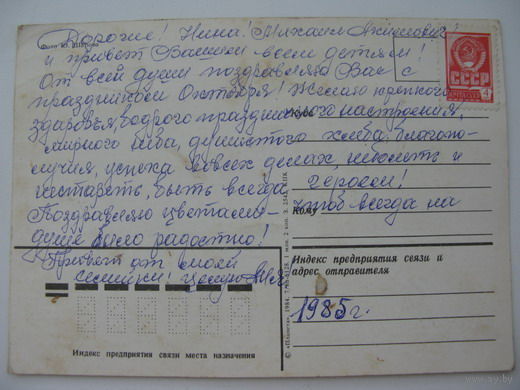 Дорогие! Нина! Михаил Акимович!
Фото Ю. 
и привет Вашим всем детям!
От всей души поздравляю Вас с
праздником Октября! Желаю крепкого
здоровья, бодрого праздничного настроения,
мирного неба, душистого хлеба, благопо-
лучия, успеха во всех делах, не болеть и
не стареть, быть всегда героем!
Поздравляю цветами- чтоб всегда на
душе было радостно!
Привет от моей
семьи! Целую
СССР
ПОЧТА
4
Куда
Кому
Индекс предприятия связи и
адрес отправителя
1985г.
Индекс предприятия связи места назначения
© «Планета», 1984.
www.ay.by